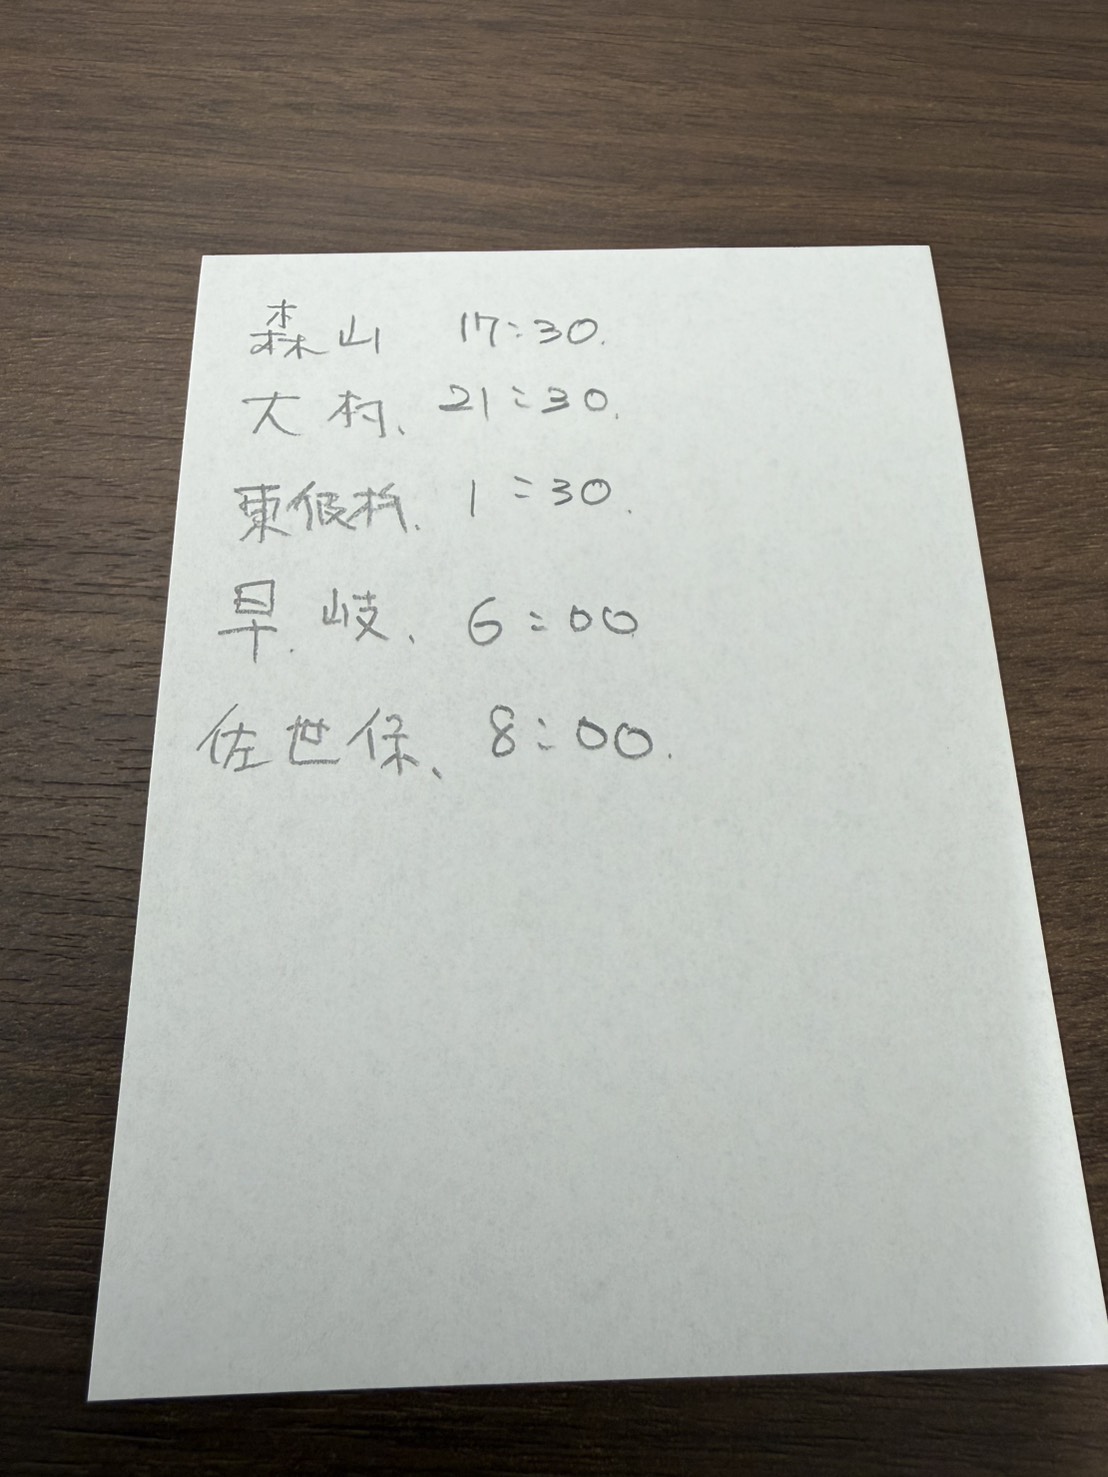 森山 17:30.
大村、21:30.
東彼杵、1:30.
早岐、6:00
佐世保、8:00.